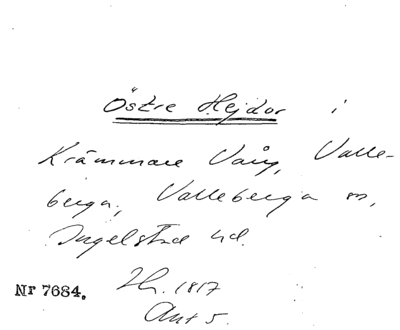 Östre Hejdor i
Krämmare Vång, Valle-
berga, Valleberga sn,
Ingelstad hd.
Nr 7684.
Hr. 1817
Akt 5.